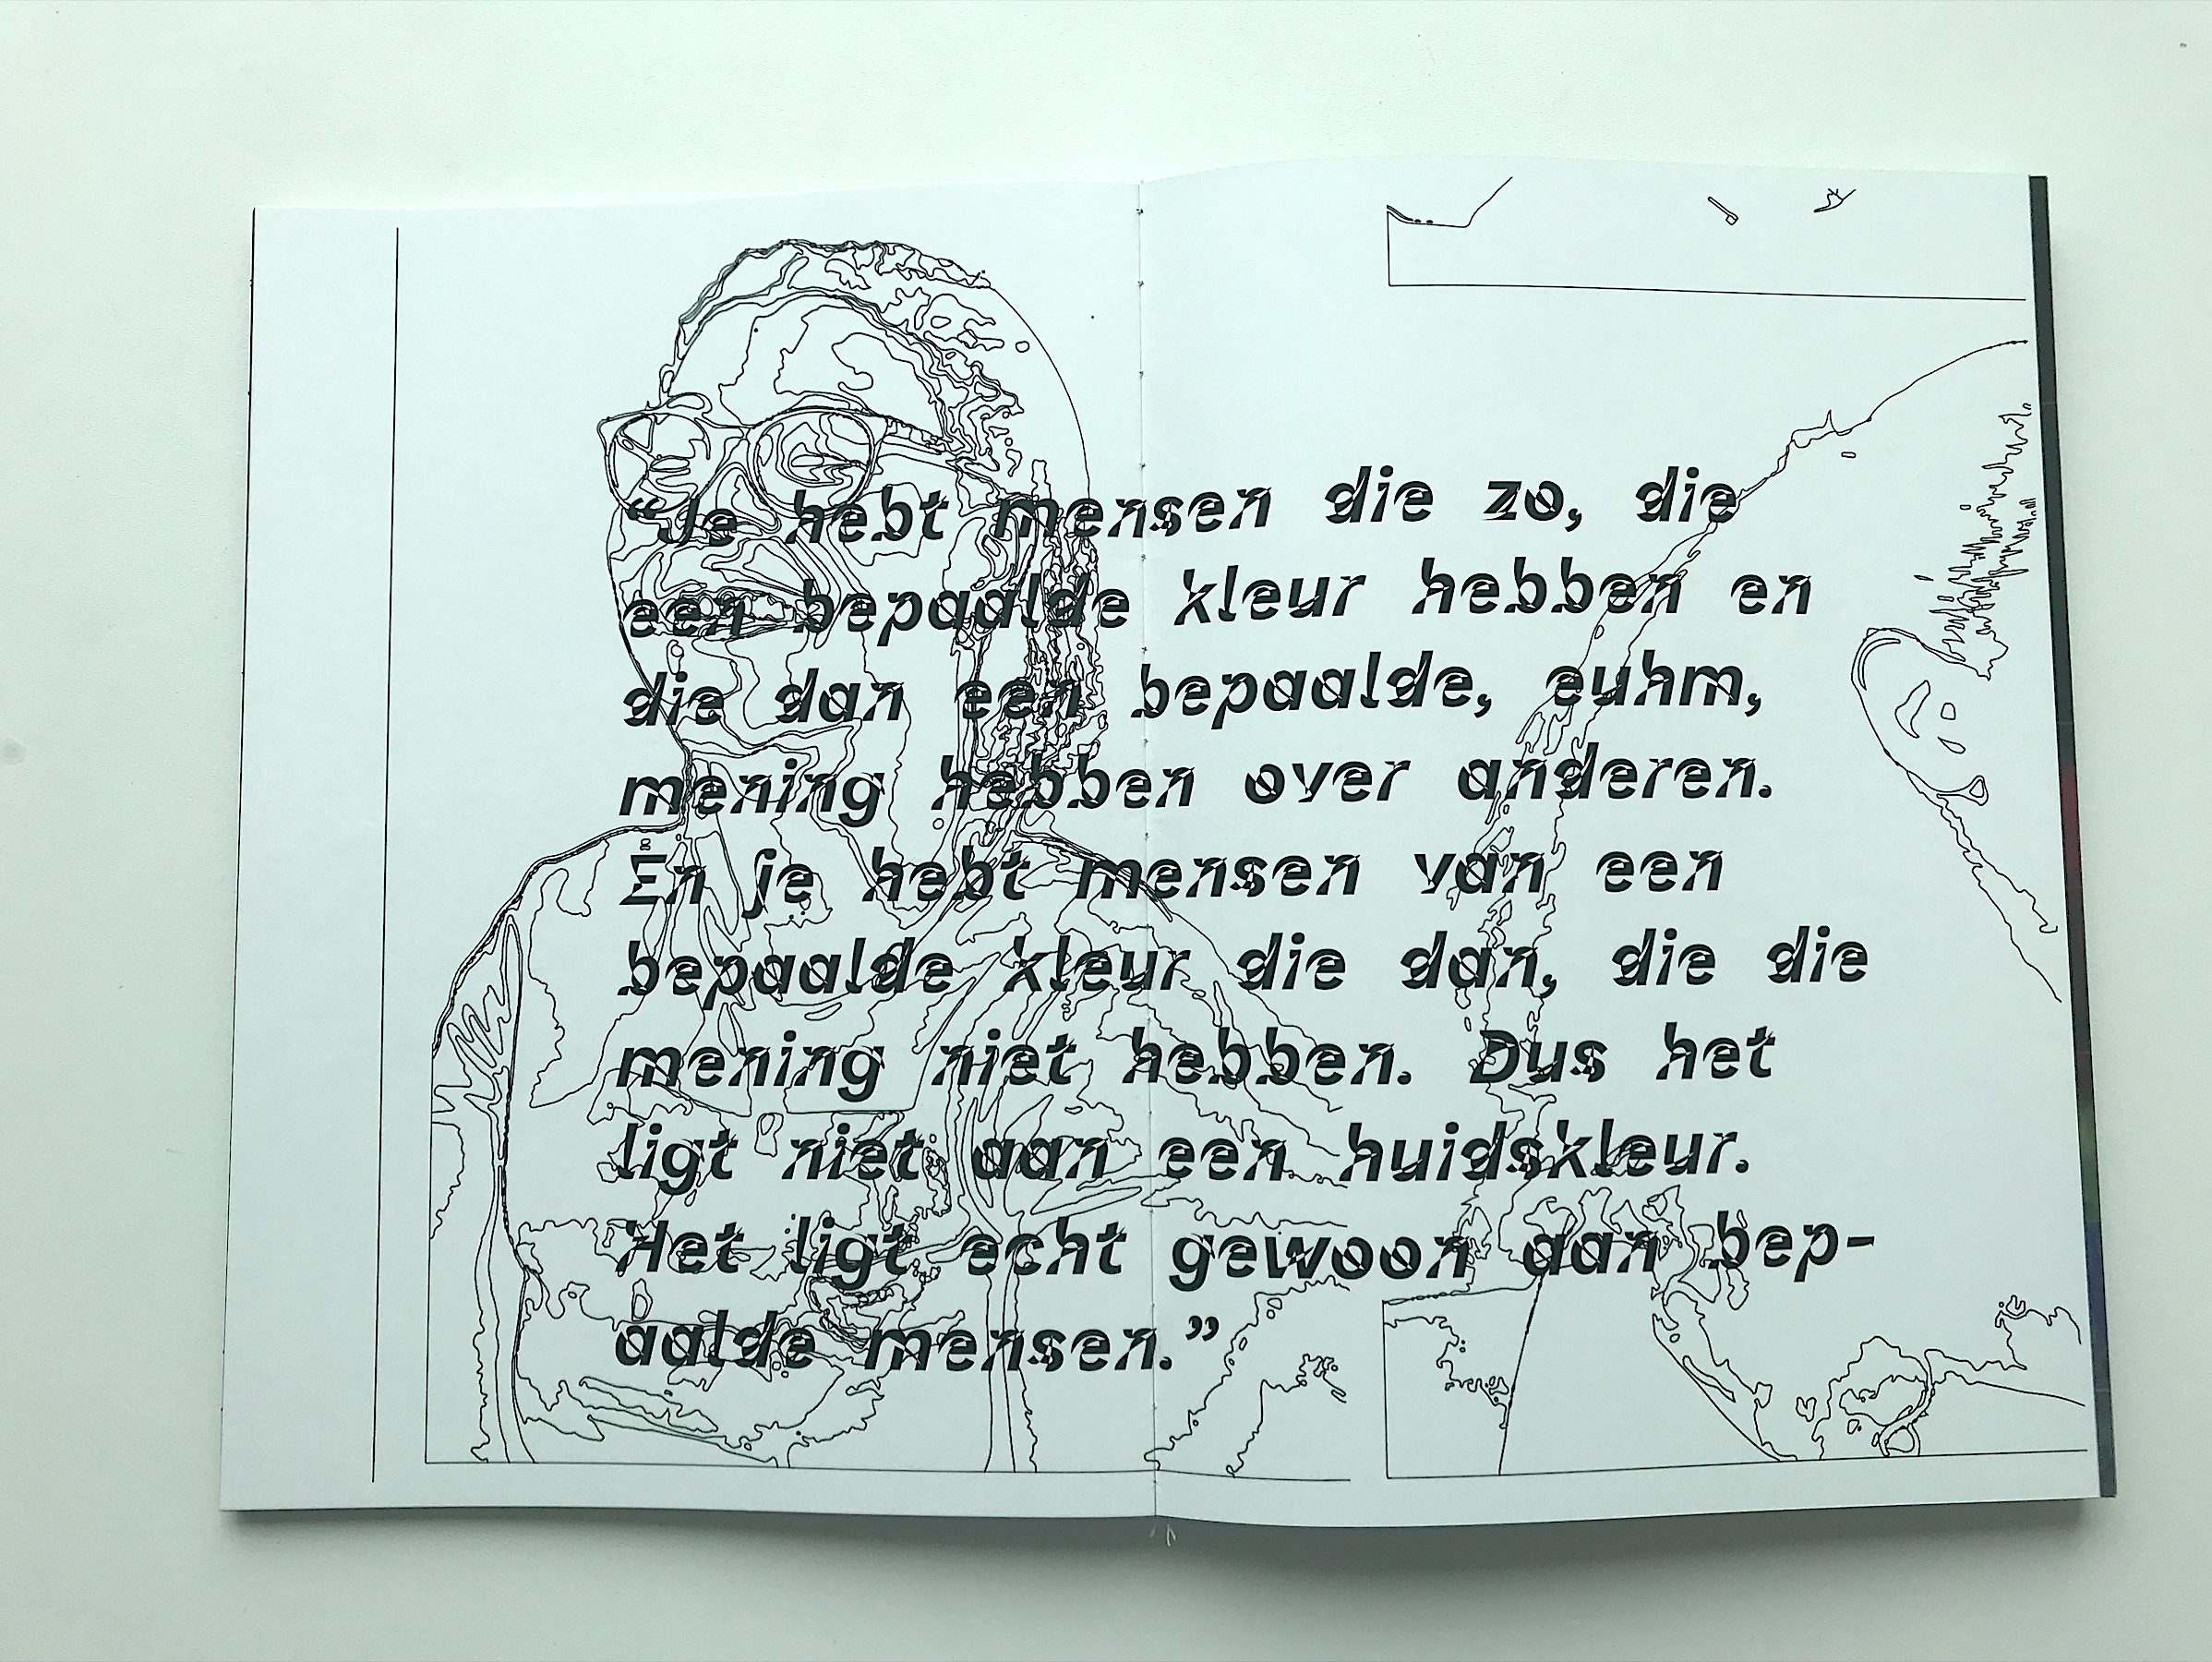 “Je hebt mensen die zo, die
een bepaalde kleur hebben en
die dan een bepaalde, euhm,
mening hebben over anderen.
En je hebt mensen van een
bepaalde kleur die dan, die die
mening niet hebben. Dus het
ligt niet aan een huidskleur.
Het ligt echt gewoon aan bep-
aalde mensen.”